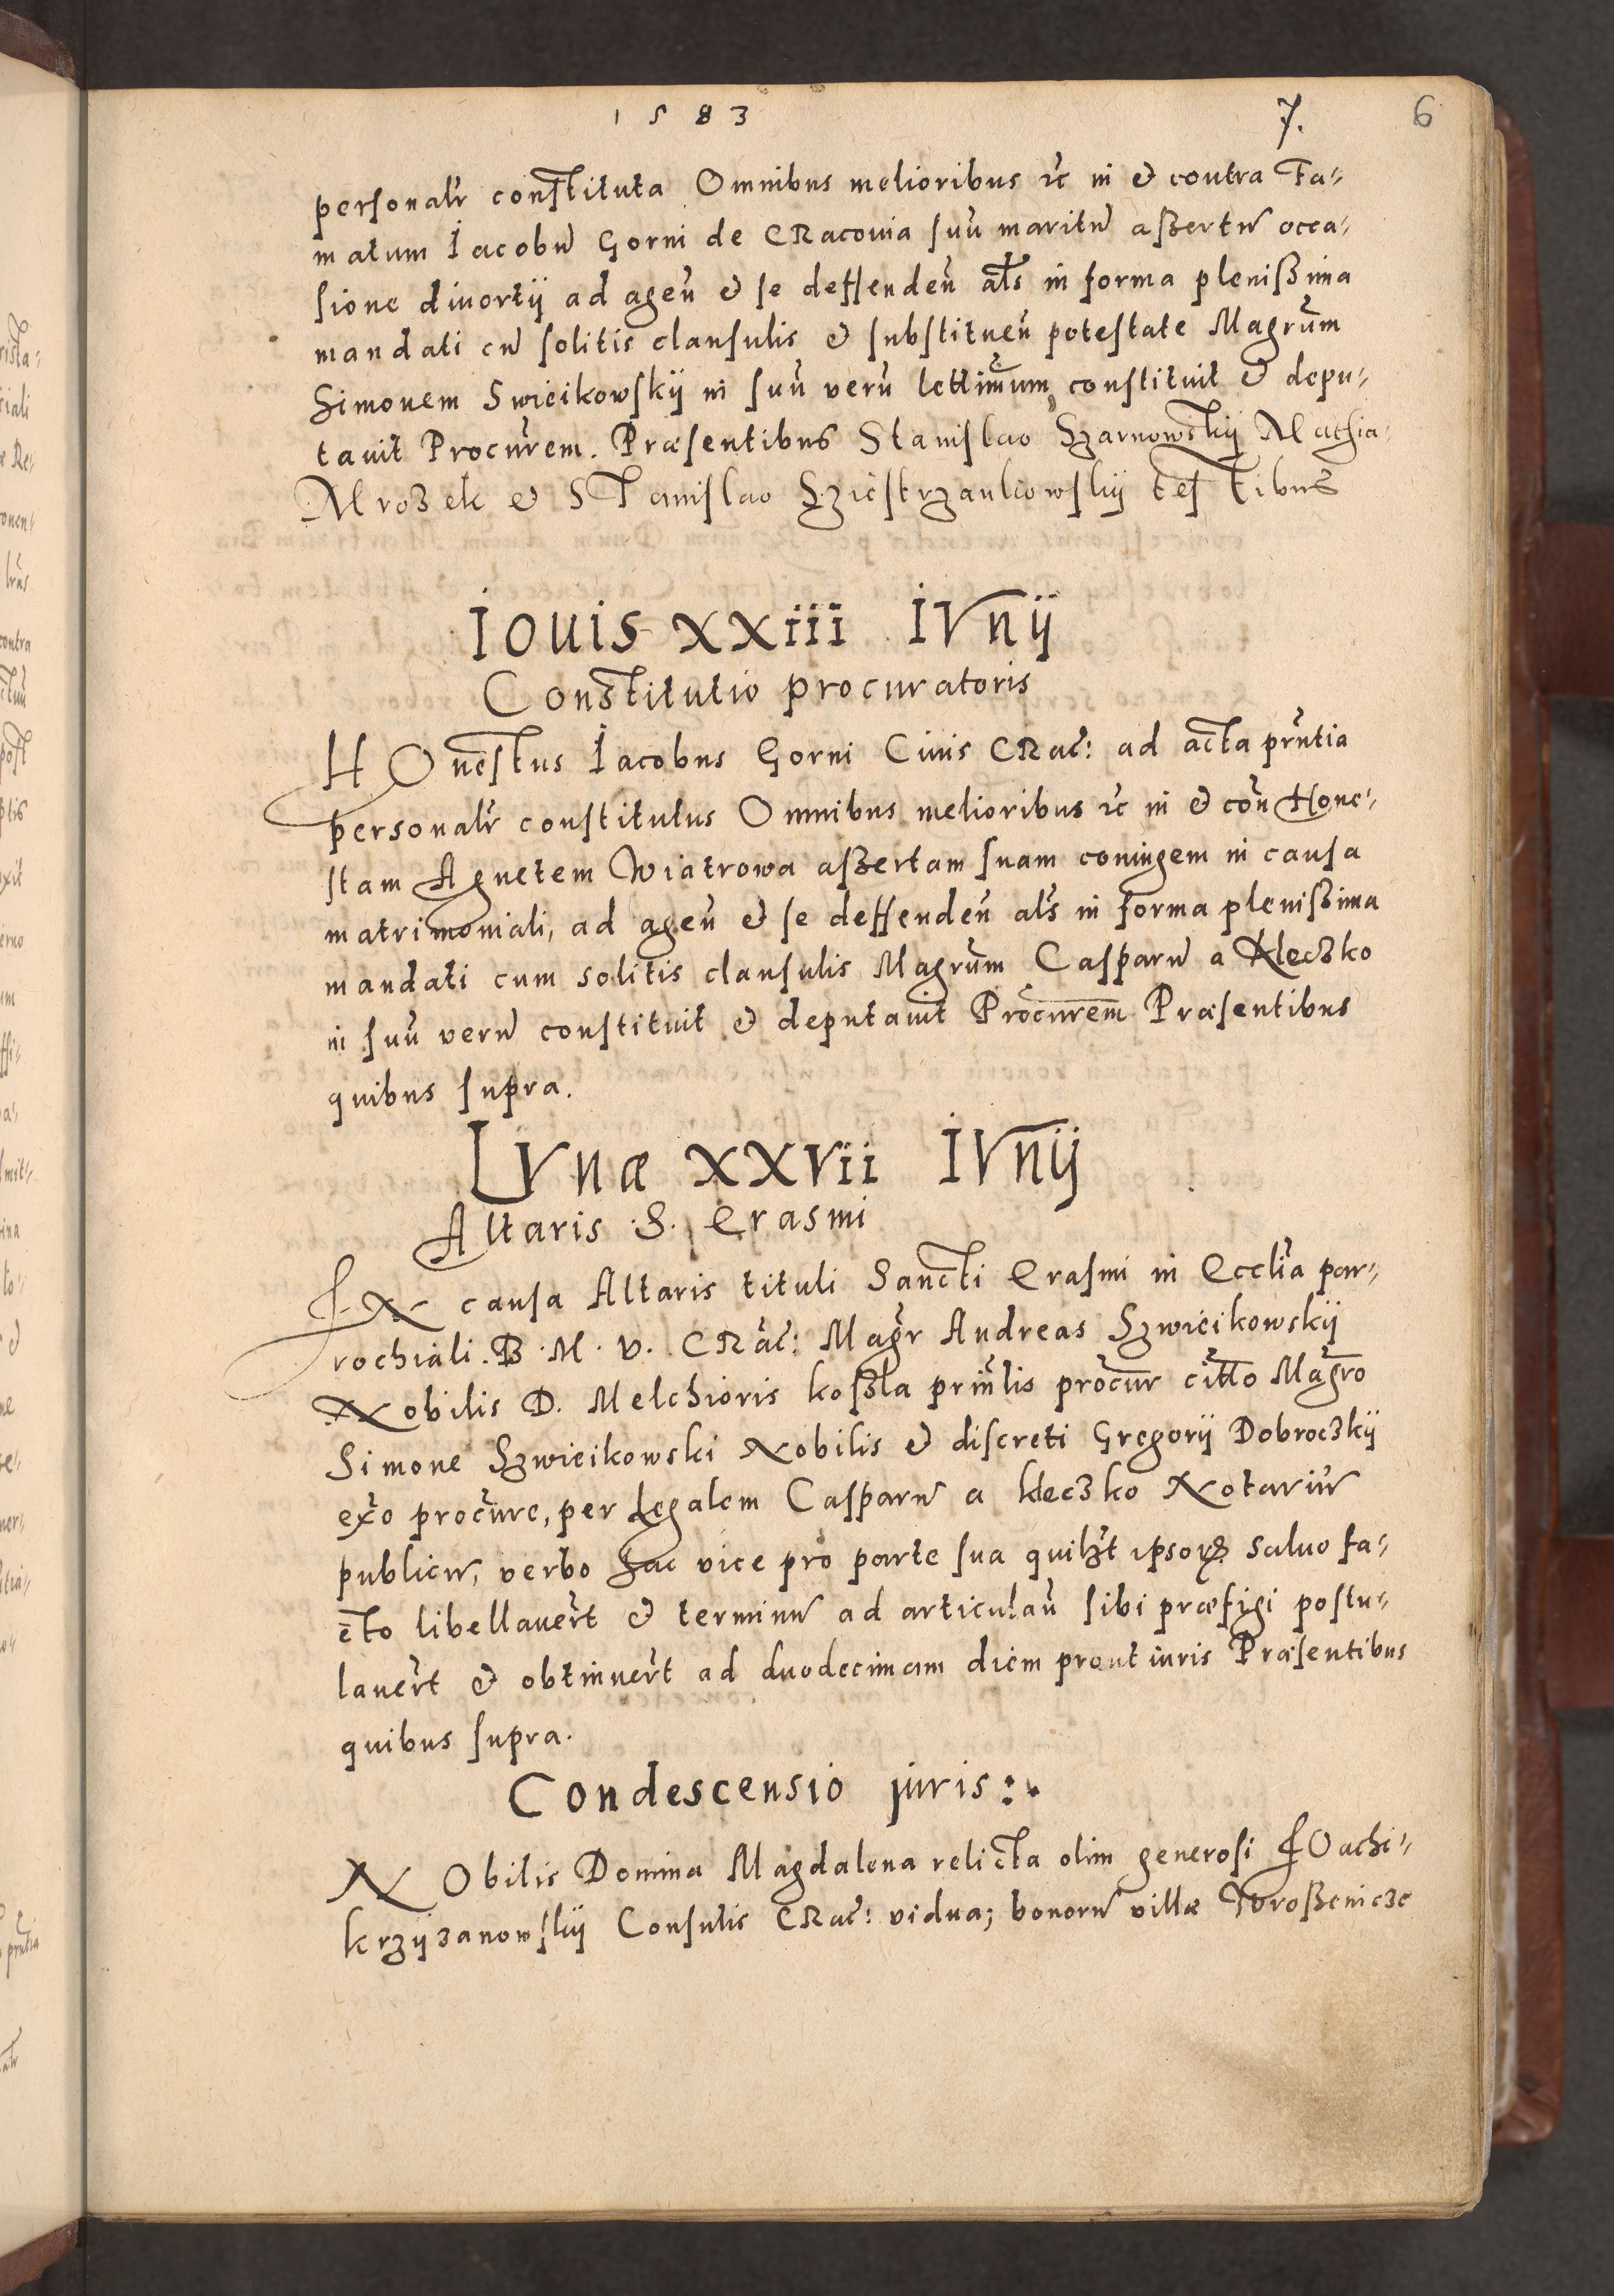 1583 7. 6
personalr constituta Omnibus melioribus rc in & contra Fa-
matum Iacobũ Gorni de CRacouia suũ maritũ aszertũ occa-
sione diuortij ad ageñ & se deffendeñ als in forma pleniszima
mandati cũ solitis clausulis & substitueñ potestate Magrũm
Simonem Swieikowskij in suũ verũ lettimum constituit & depu-
tauit Procurem. Præsentibus Stanislao Szarnowskij Mathia
Mrozek & STanislao Sziestrzankowskij tesTibus
Iouis xxiii IVnij
Constitutio procuratoris
HOnestus Iacobus Gorni Ciuis CRac: ad acta prñtia
personalr constitutus Omnibus melioribus rc in & coñ Hone-
stam Agnetem Wiatrowa aszertam suam coniugem in causa
matrimoniali, ad ageñ & se deffendeñ als in forma pleniszima
mandati cum solitis clausulis Magrũm Casparũ a Kleczko
in suũ verũ constituit & deputauit Procurem Præsentibus
quibus supra.
LVnæ xxvii IVnij
Altaris .S. Erasmi
IN causa Altaris tituli Sancti Erasmi in Ecclia par-
rochiali .B.M.V. CRac: Magr Andreas Szwieikowskij
Nobilis D. Melchioris koszla prinlis procur citto Magro
Simone Szwieikowski Nobilis & discreti Gregorij Dobroczkij
exo procure, per Legalem Casparũ a kleczko Notariũ
publicũ, verbo hac vice pro parte sua quilzt ipsoꝝ saluo fa-
cto libellauert & terminũ ad articulañ sibi præfigi postu-
lauert & obtinuert ad duodecimam diem prout iuris Præsentibus
quibus supra.
Condescensio juris:.
NObilis Domina Magdalena relicta olim generosi IOachi-
krzijzanowskij Consulis CRac: vidua; bonorũ villæ Wroszenicze